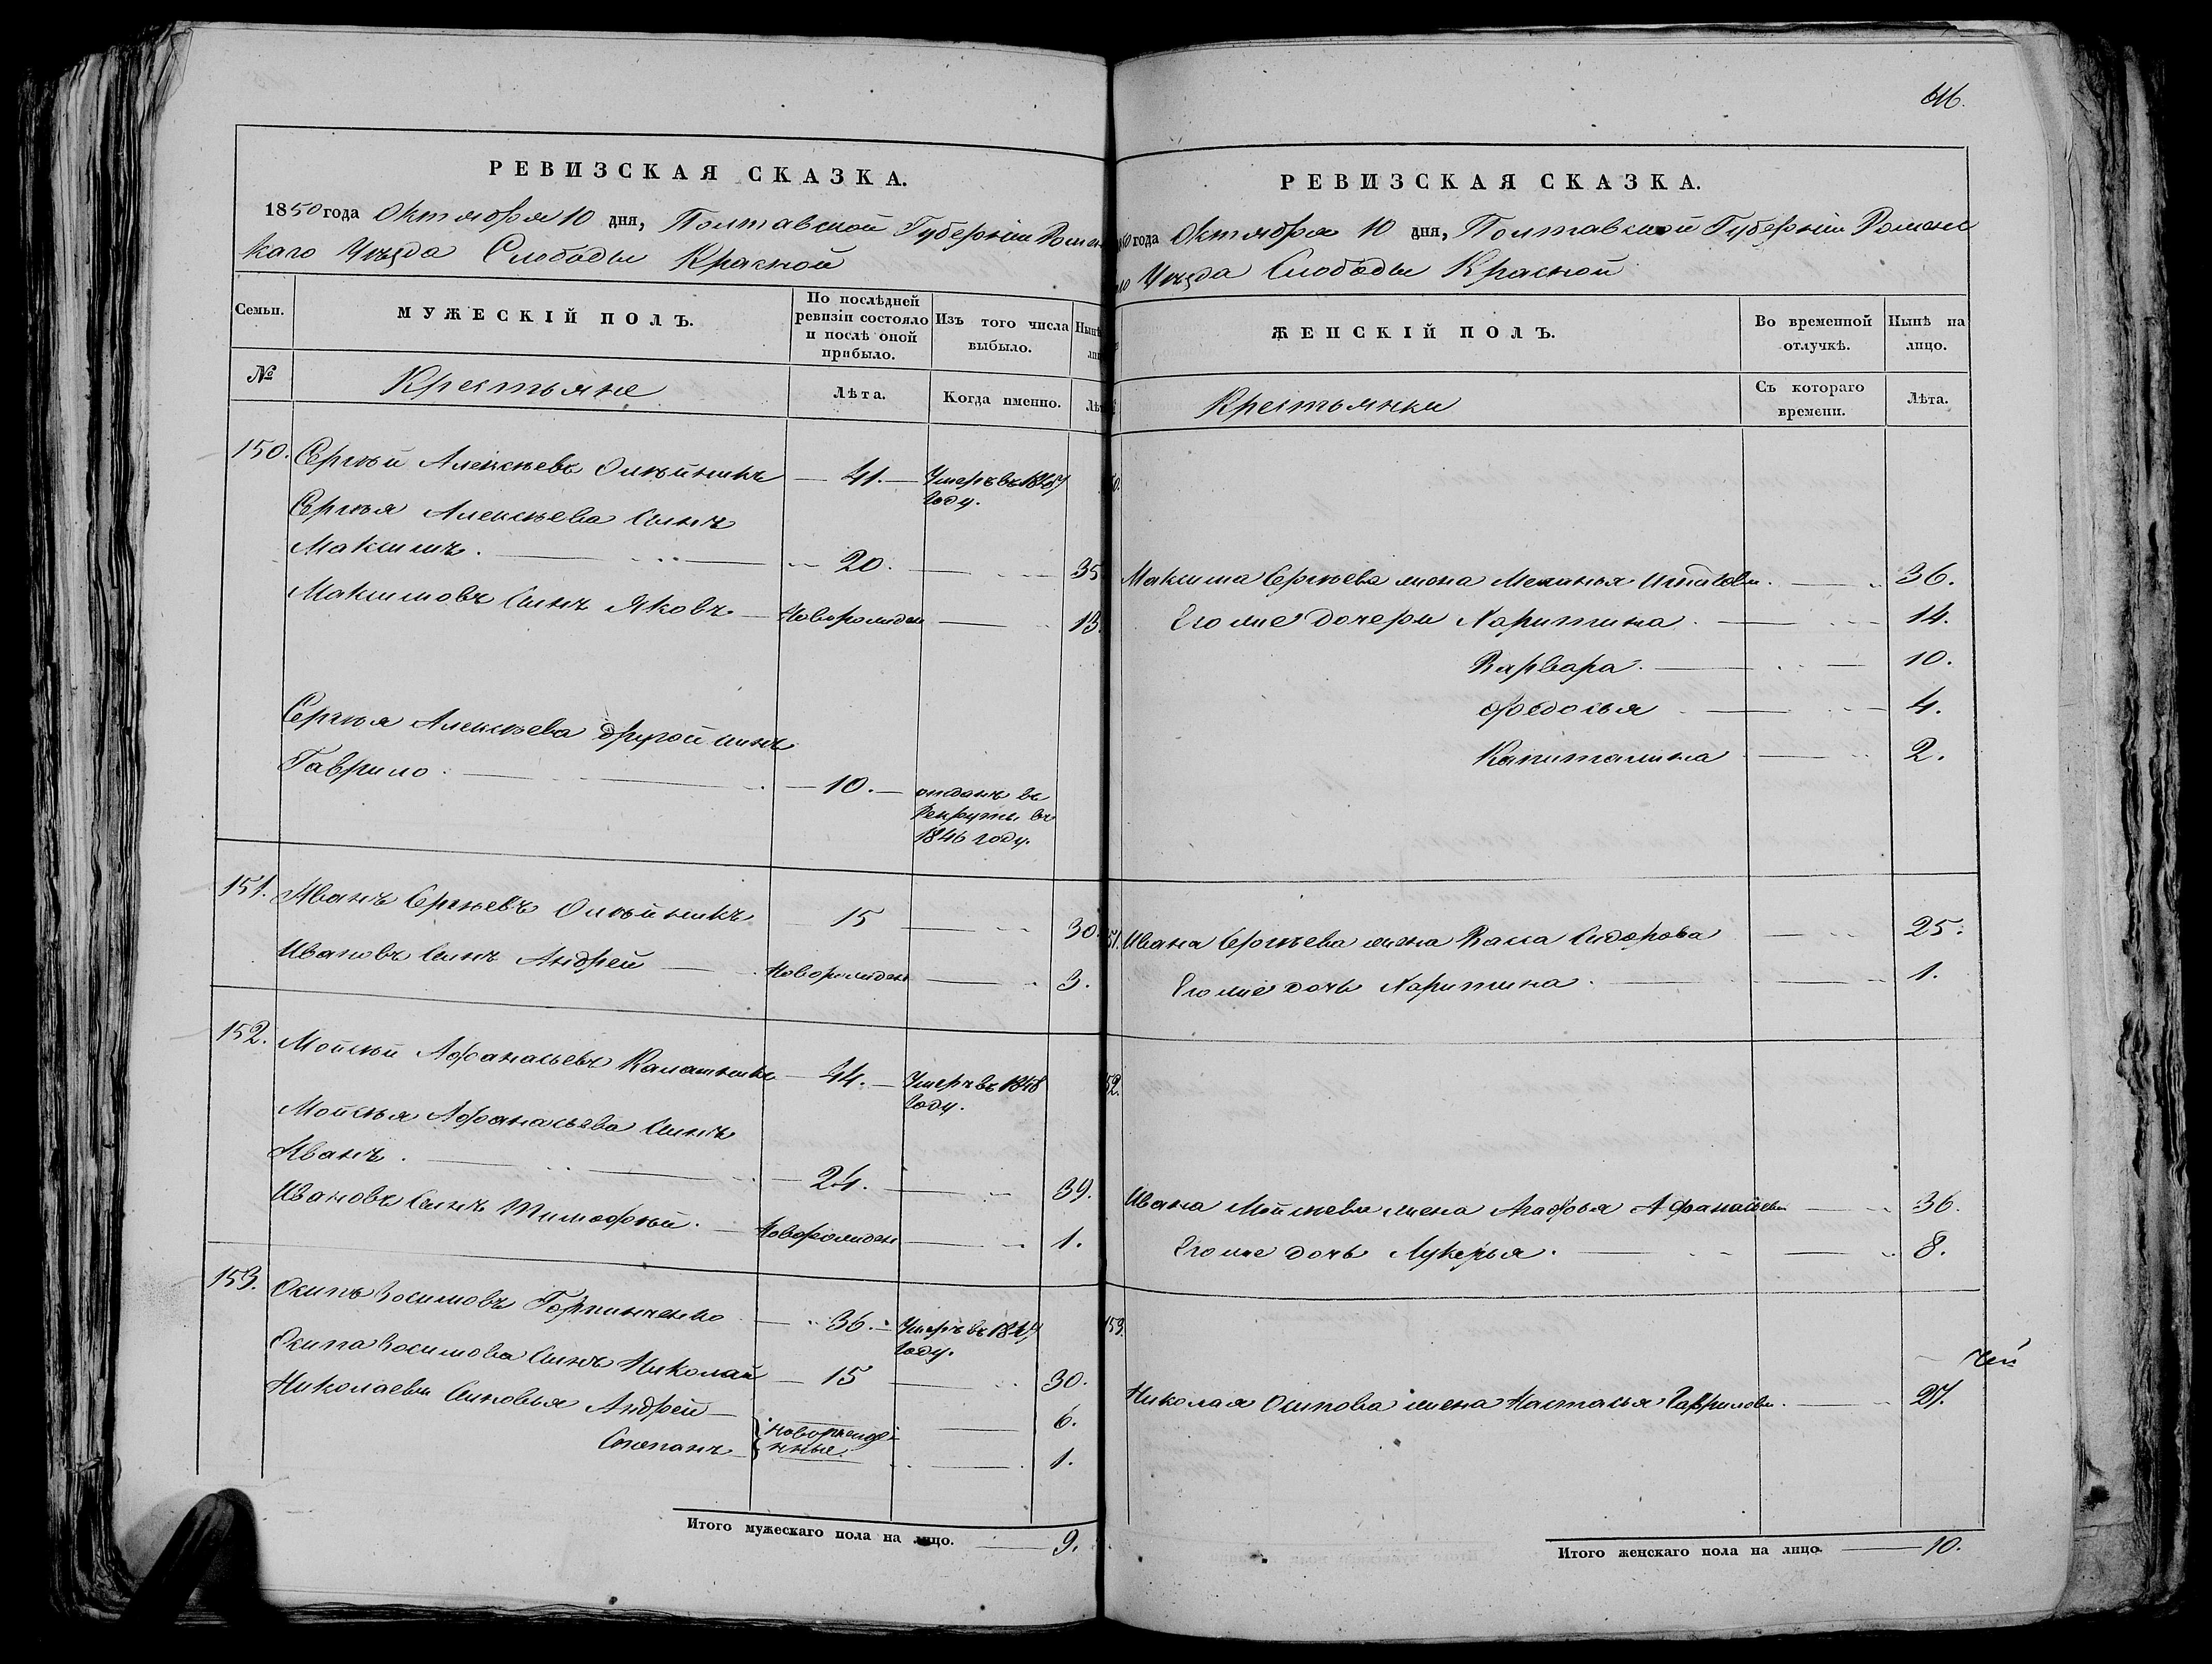 РЕВИЗСКАЯ СКАЗКА.
1850 года Октября 10 дня, Полтавской Губерніи Ромен
каго Уѣзда Слободы Красной
Семьи.
МУЖЕСКІЙ ПОЛЪ.
По послѣдней ревизіи состояло и послѣ оной прибыло.
Изъ того числа выбыло.
№
Крестьяне
Лѣта.
Когда именно.
150. Сергѣй Алексѣевъ Олѣйникъ — 41. — Умеръ въ
году.
Сергѣя Алексѣева Сынъ
Максимъ. — 20. — 35
Максимовъ Сынъ Яковъ — Новорожден — 13.
Сергѣя Алексѣева другой сынъ
Гаврило. — 10. — отданъ въ
Рекруты въ
1846 году.
151. Иванъ Сергѣевъ Олѣйникъ 15 — 30.
Ивановъ Сынъ Андрей — Новорожден — 3.
152. Мойсѣй Афанасьевъ Калашникъ — 44. — Умеръ въ 1848
году.
Мойсѣя Афанасьева Сынъ
Иванъ. — 24. — 39.
Ивановъ Сынъ Тимофѣй. — Новорожден — 1.
153. Осипъ Зосимовъ Горпинченко — 36. — Умеръ въ
году.
Осипа Зосимова Сынъ Николай — 15 — 30.
Николаевы Сыновья Андрей — новорожде — 6.
Степанъ — нные. — 1.
Итого мужескаго пола на лицо. — 9.
616.
РЕВИЗСКАЯ СКАЗКА.
50 года Октября 10 дня, Полтавской Губерніи Роменс
го Уѣзда Слободы Красной
ЖЕНСКІЙ ПОЛЪ.
Во временной отлучкѣ.
Нынѣ на лицо.
Крестьянки
Съ котораго времени.
Лѣта.
0.
Максима Сергѣева жена Меланья — 36.
Его же дочери Харитина. — 14.
Варвара. — 10.
Федосья — 4.
Капиталина — 2.
51. Ивана Сергѣева жена Васа Сидорова — 25.
Его же дочь Харитина. — 1.
52.
Ивана Мойсѣева жена Агафья Афанасьева — 36.
Его же дочь Лукерья. — 8.
153.
Николая Осипова жена Настасья Гаврилова. — 27.
Итого женскаго пола на лицо — 10.